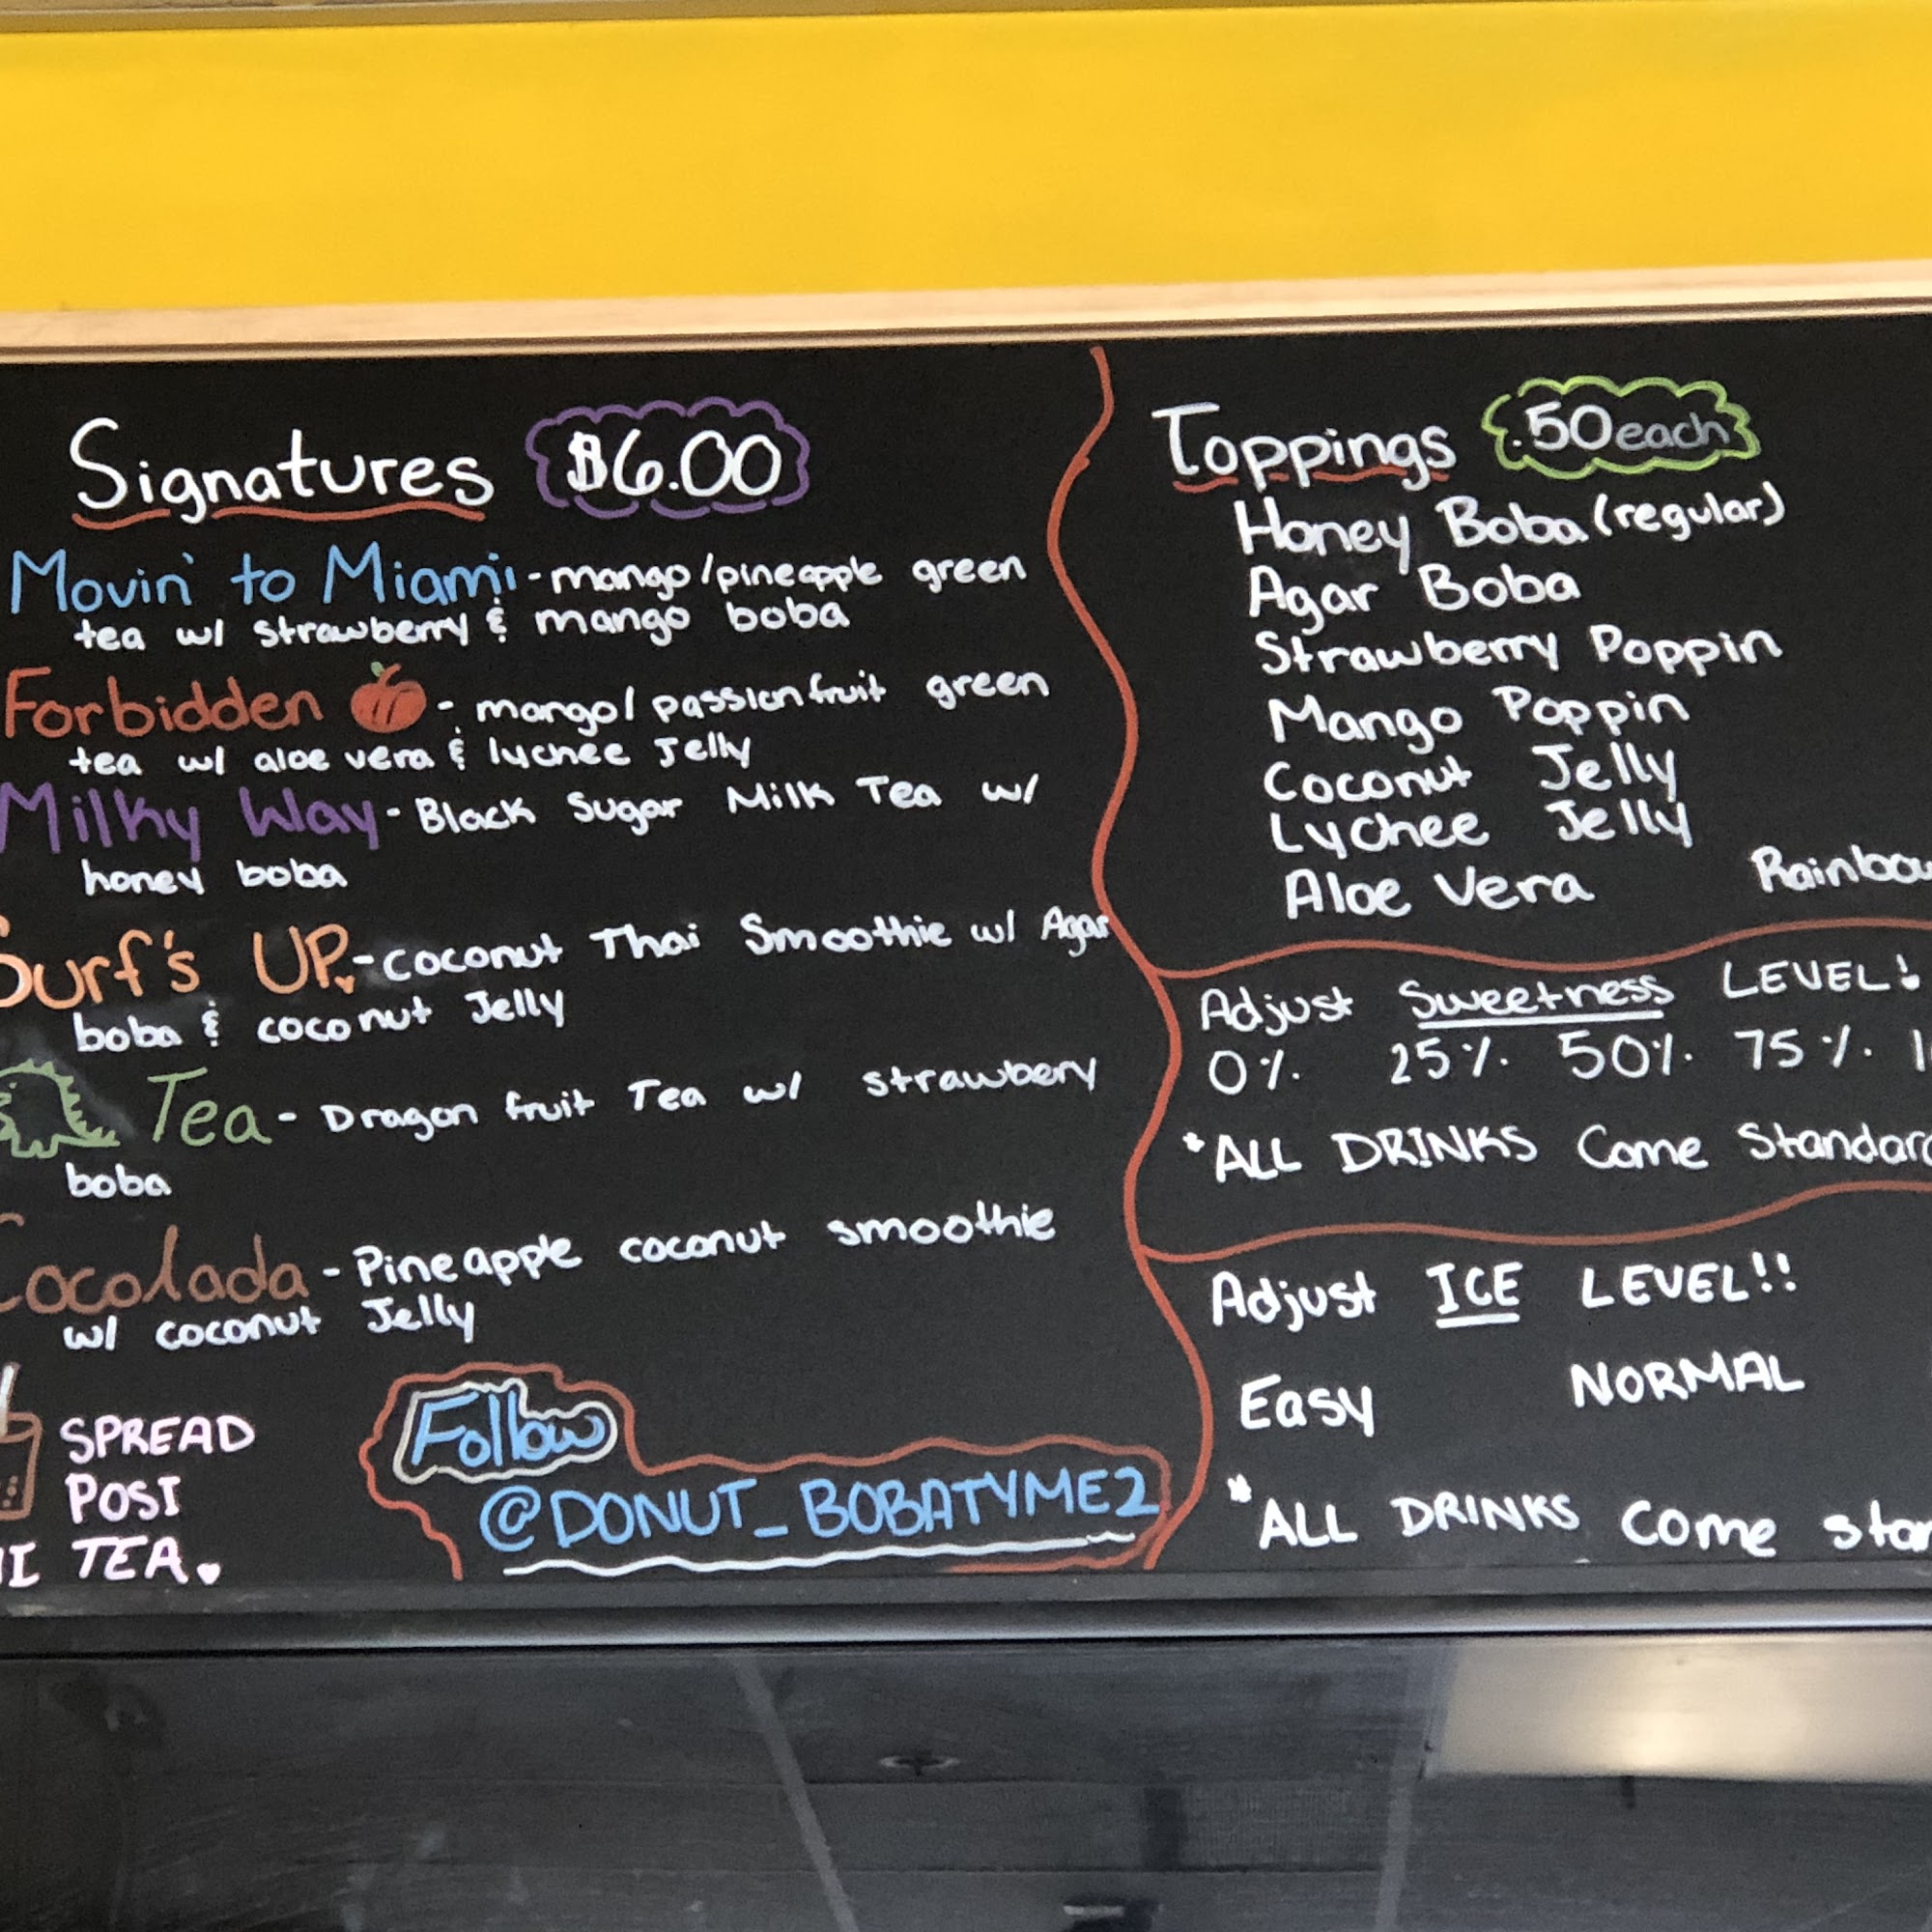 Signatures $6.00
Movin' to Miami - mango/pineapple green
tea w/ strawberry & mango boba
Forbidden - mango/passionfruit green
tea w/ aloe vera & lychee Jelly
Milky Way - Black Sugar Milk Tea w/
honey boba
Surf's UP - coconut Thai Smoothie w/ Agar
boba & coconut Jelly
Tea - Dragon fruit Tea w/ strawbery
boba
Cocolada - Pineapple coconut smoothie
w/ coconut Jelly
SPREAD
POSI
TEA
Follow
@DONUT_BOBATYME2
Toppings .50 each
Honey Boba (regular)
Agar Boba
Strawberry Poppin
Mango Poppin
Coconut Jelly
Lychee Jelly
Aloe Vera
Adjust Sweetness LEVEL!
0% 25% 50% 75%
*ALL DRINKS Come Standard
Adjust ICE LEVEL!!
Easy NORMAL
*ALL DRINKS Come